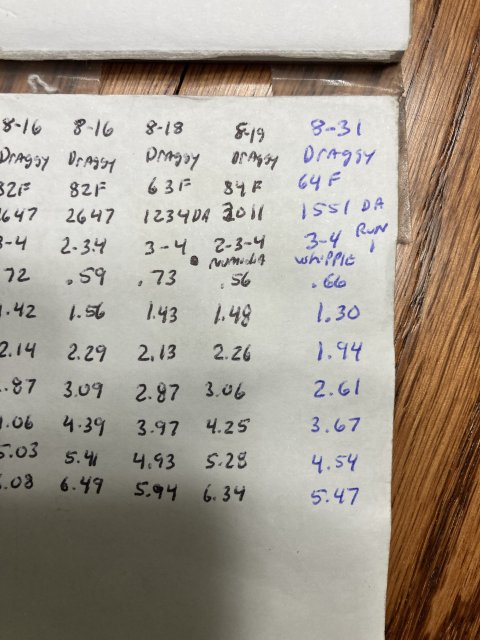 8-16 8-16 8-18 8-19 8-31
Draggy Draggy Draggy Draggy Draggy
82F 82F 63F 84F 64F
2647 2647 1234DA 2011 1551 DA
3-4 2-3-4 3-4 2-3-4 3-4 RUN 1
WHIPPLE
.72 .59 .73 .56 .66
1.42 1.56 1.43 1.48 1.30
2.14 2.29 2.13 2.26 1.94
.87 3.09 2.87 3.06 2.61
.06 4.39 3.97 4.25 3.67
5.03 5.41 4.93 5.28 4.54
.08 6.49 5.94 6.34 5.47